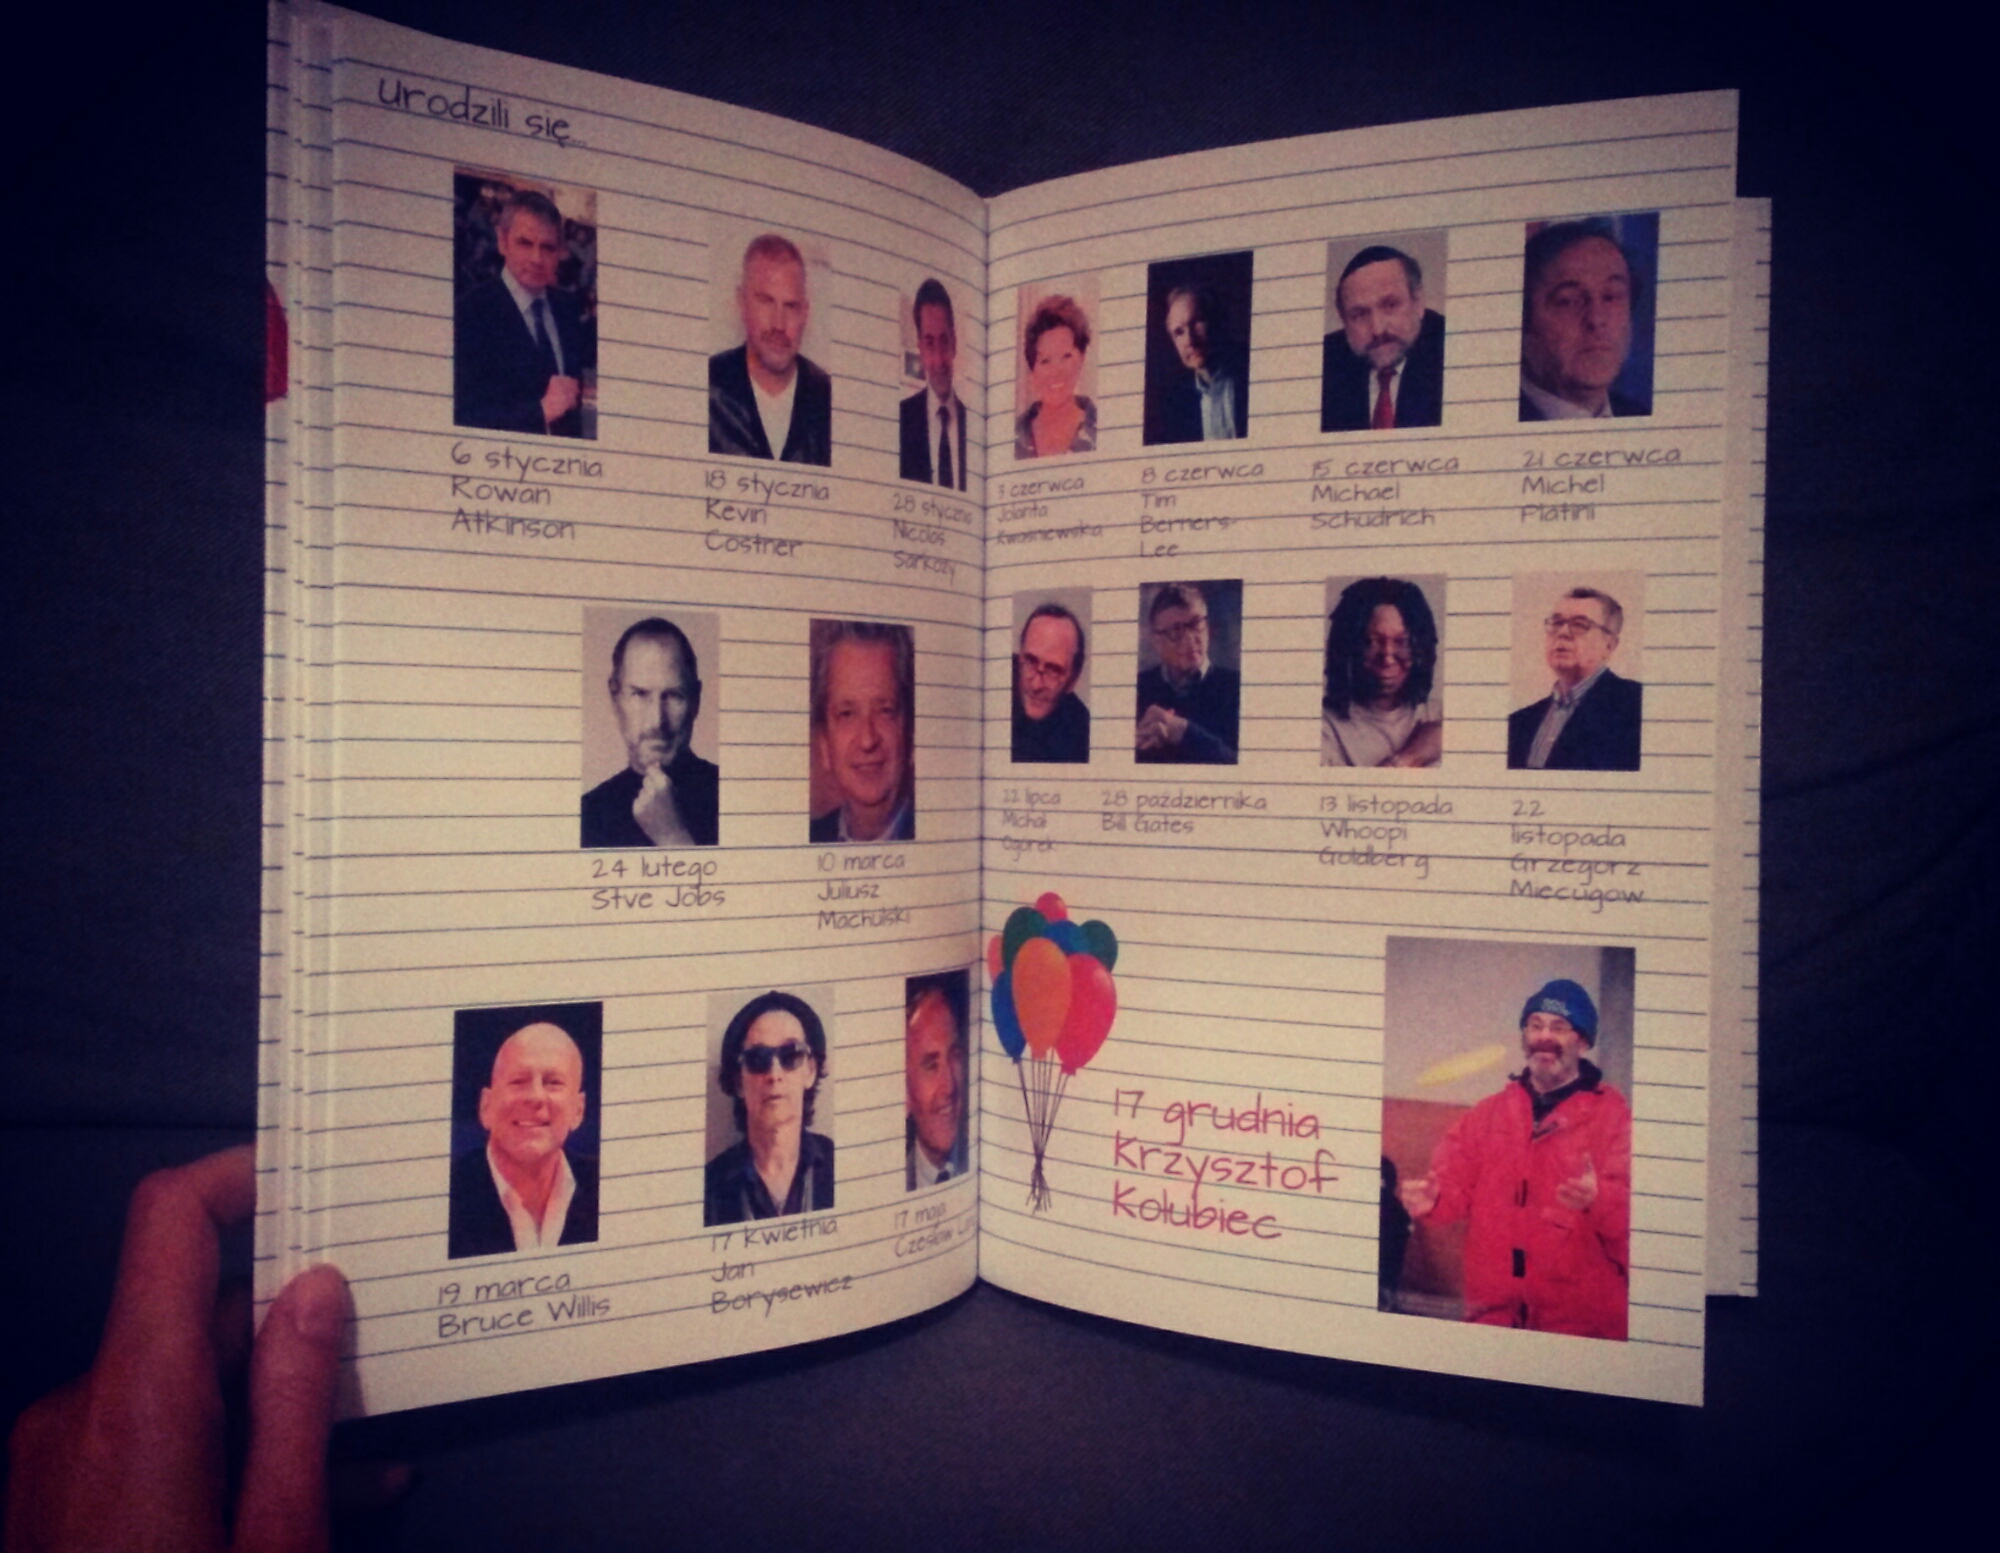 urodzili się...
6 stycznia
Rowan
Atkinson
18 stycznia
Kevin
Costner
28 stycznia
Nicolas
Sarkozy
24 lutego
Stve Jobs
10 marca
Juliusz
Machulski
19 marca
Bruce Willis
17 kwietnia
Jan
Borysewicz
17 maja
Czesław
3 czerwca
Jolanta
Kwaśniewska
8 czerwca
Tim
Berners-
Lee
15 czerwca
Michael
Schudrich
21 czerwca
Michel
Platini
22 lipca
Michał
Ogórek
28 października
Bill Gates
13 listopada
Whoopi
Goldberg
22
listopada
Grzegorz
Miecugow
17 grudnia
Krzysztof
Kołubiec